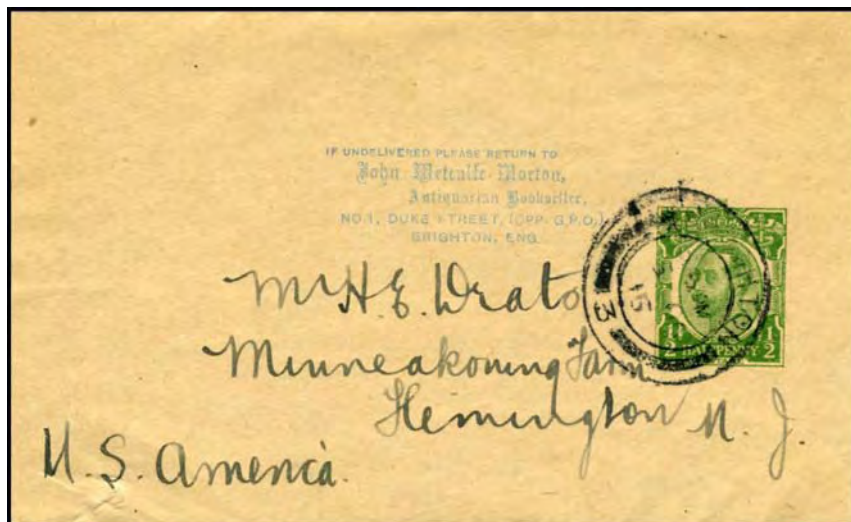 IF UNDELIVERED PLEASE RETURN TO
John Metcalfe-Morton,
Antiquarian Bookseller,
NO. 1, DUKE STREET, (OPP. G.P.O.)
BRIGHTON, ENG.
Mr H. E. Drato
Minneakoning Farm
Flemington N. J.
U. S. America.
HTON
15
3
½ ½
HALFPENNY